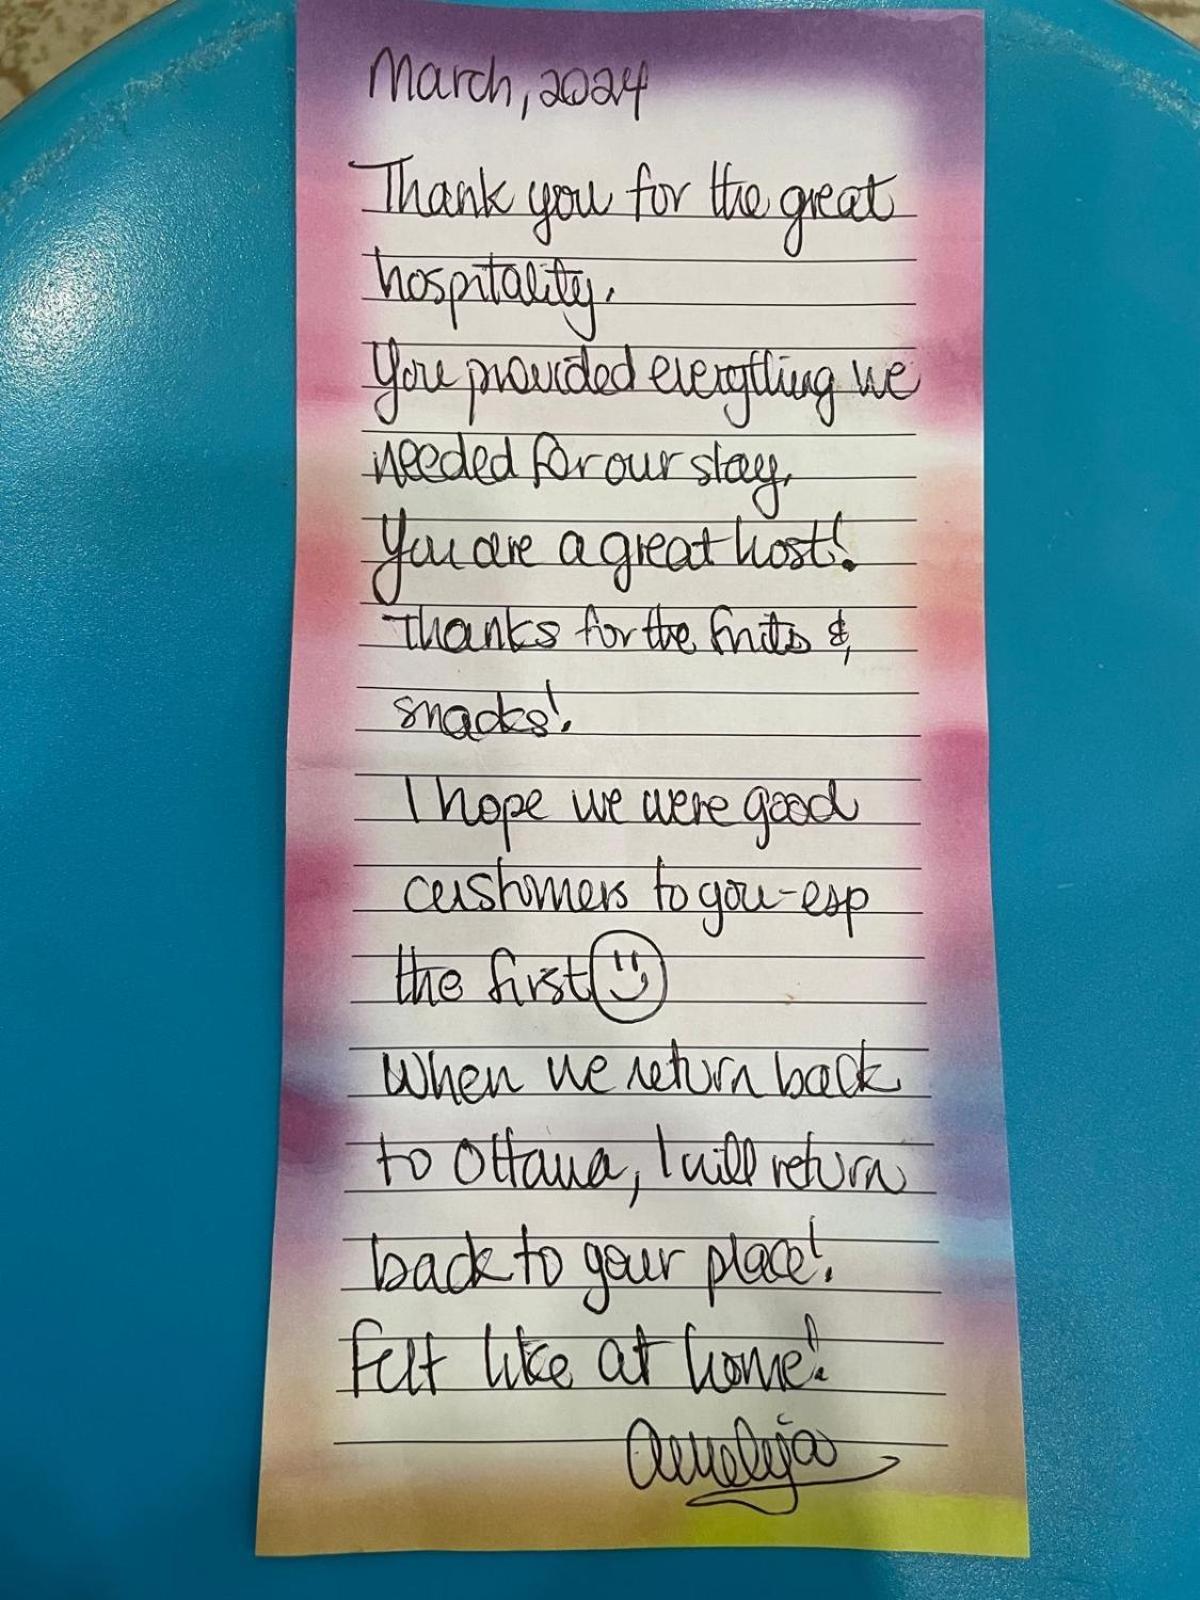 March, 2024
Thank you for the great
hospitality.
You provided everything we
needed for our stay.
You are a great host!
Thanks for the fruits &
snacks!
I hope we were good
customers to you-esp
the first
When we return back
to Ottawa, I will return
back to your place!
Felt like at home!